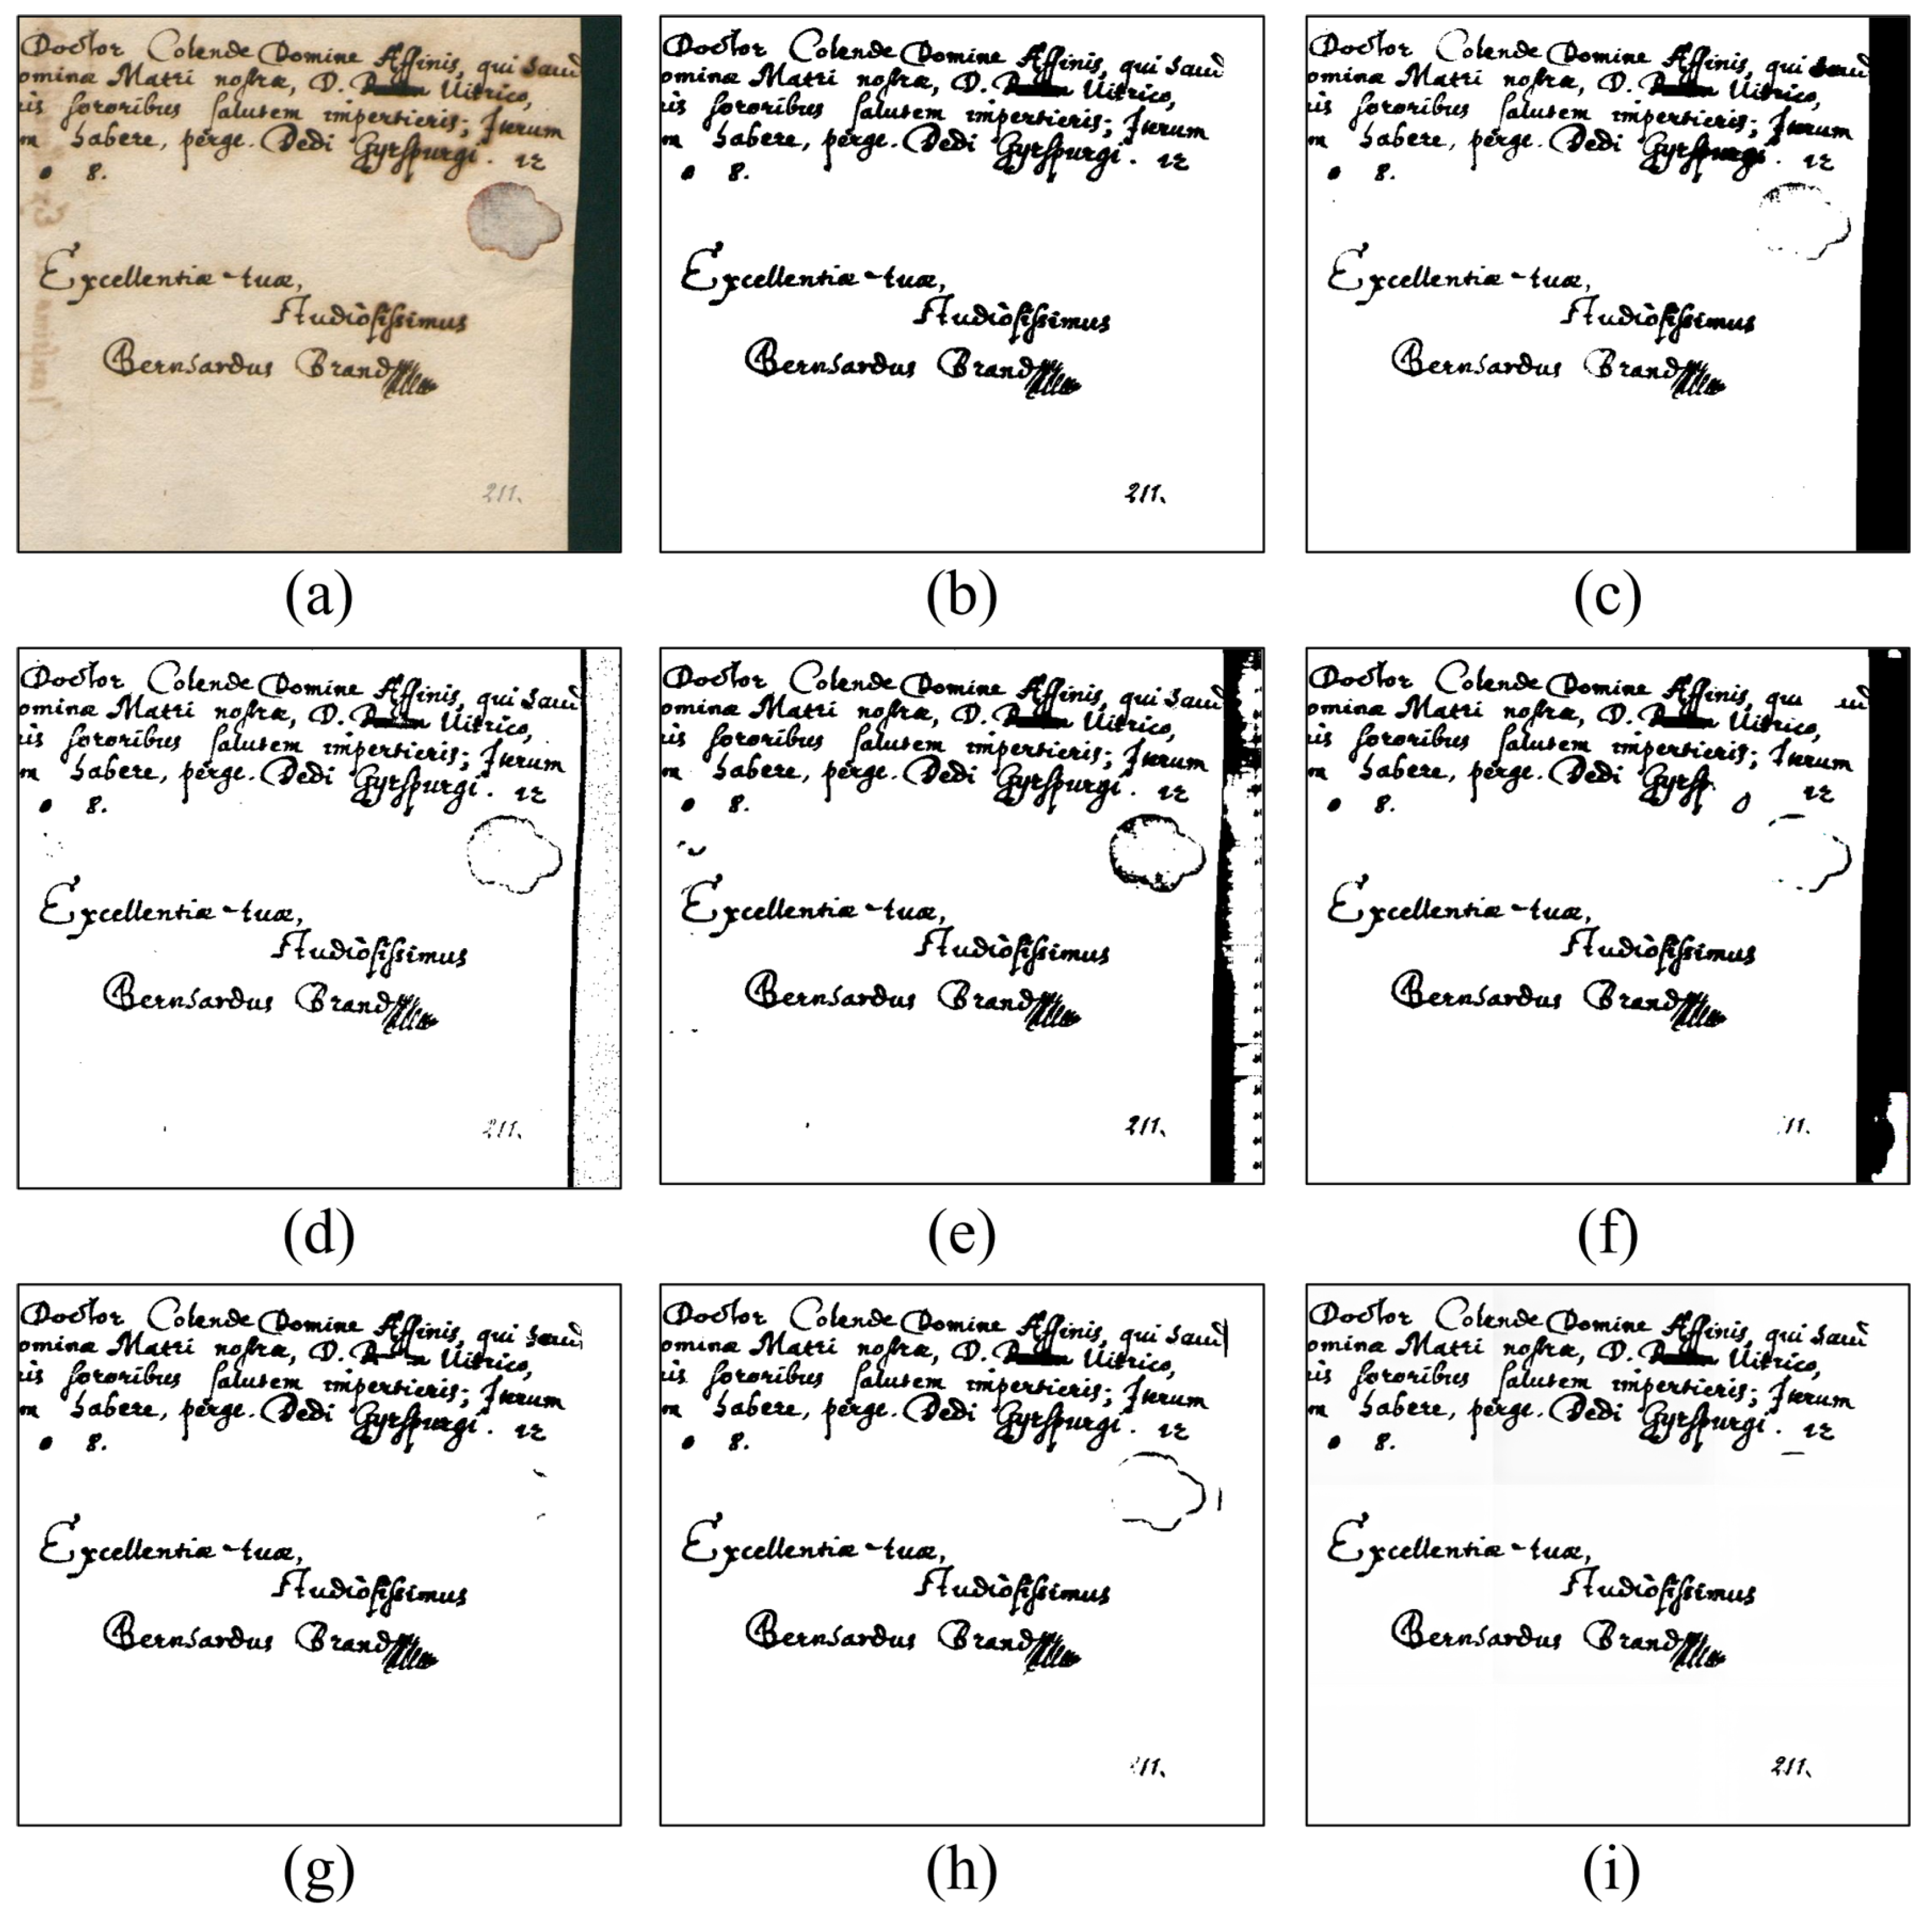 Doctor Colende Domine Affinis, qui
ominæ Matri nostræ, D. Vitrico,
iis sororibus salutem impertieris; Iterum
m habere, perge. Dedi Gyrspurgi. 12
8.
Excellentiæ tuæ,
Studiosissimus
Bernhardus Brand
211.
(a)
Doctor Colende Domine Affinis, qui
ominæ Matri nostræ, D. Vitrico,
iis sororibus salutem impertieris; Iterum
m habere, perge. Dedi Gyrspurgi. 12
8.
Excellentiæ tuæ,
Studiosissimus
Bernhardus Brand
211.
(b)
Doctor Colende Domine Affinis, qui
ominæ Matri nostræ, D. Vitrico,
iis sororibus salutem impertieris; Iterum
m habere, perge. Dedi Gyrspurgi. 12
8.
Excellentiæ tuæ,
Studiosissimus
Bernhardus Brand
(c)
Doctor Colende Domine Affinis, qui
ominæ Matri nostræ, D. Vitrico,
iis sororibus salutem impertieris; Iterum
m habere, perge. Dedi Gyrspurgi. 12
8.
Excellentiæ tuæ,
Studiosissimus
Bernhardus Brand
211.
(d)
Doctor Colende Domine Affinis, qui
ominæ Matri nostræ, D. Vitrico,
iis sororibus salutem impertieris; Iterum
m habere, perge. Dedi Gyrspurgi. 12
8.
Excellentiæ tuæ,
Studiosissimus
Bernhardus Brand
211.
(e)
Doctor Colende Domine Affinis, qu
ominæ Matri nostræ, D. Vitrico,
iis sororibus salutem impertieris; Iterum
m habere, perge. Dedi Gyrsp 12
8.
Excellentiæ tuæ,
Studiosissimus
Bernhardus Brand
11.
(f)
Doctor Colende Domine Affinis, qui
ominæ Matri nostræ, D. Vitrico,
iis sororibus salutem impertieris; Iterum
m habere, perge. Dedi Gyrspurgi. 12
8.
Excellentiæ tuæ,
Studiosissimus
Bernhardus Brand
(g)
Doctor Colende Domine Affinis, qui
ominæ Matri nostræ, D. Vitrico,
iis sororibus salutem impertieris; Iterum
m habere, perge. Dedi Gyrspurgi. 12
8.
Excellentiæ tuæ,
Studiosissimus
Bernhardus Brand
11.
(h)
Doctor Colende Domine Affinis, qui
ominæ Matri nostræ, D. Vitrico,
iis sororibus salutem impertieris; Iterum
m habere, perge. Dedi Gyrspurgi. 12
8.
Excellentiæ tuæ,
Studiosissimus
Bernhardus Brand
211.
(i)